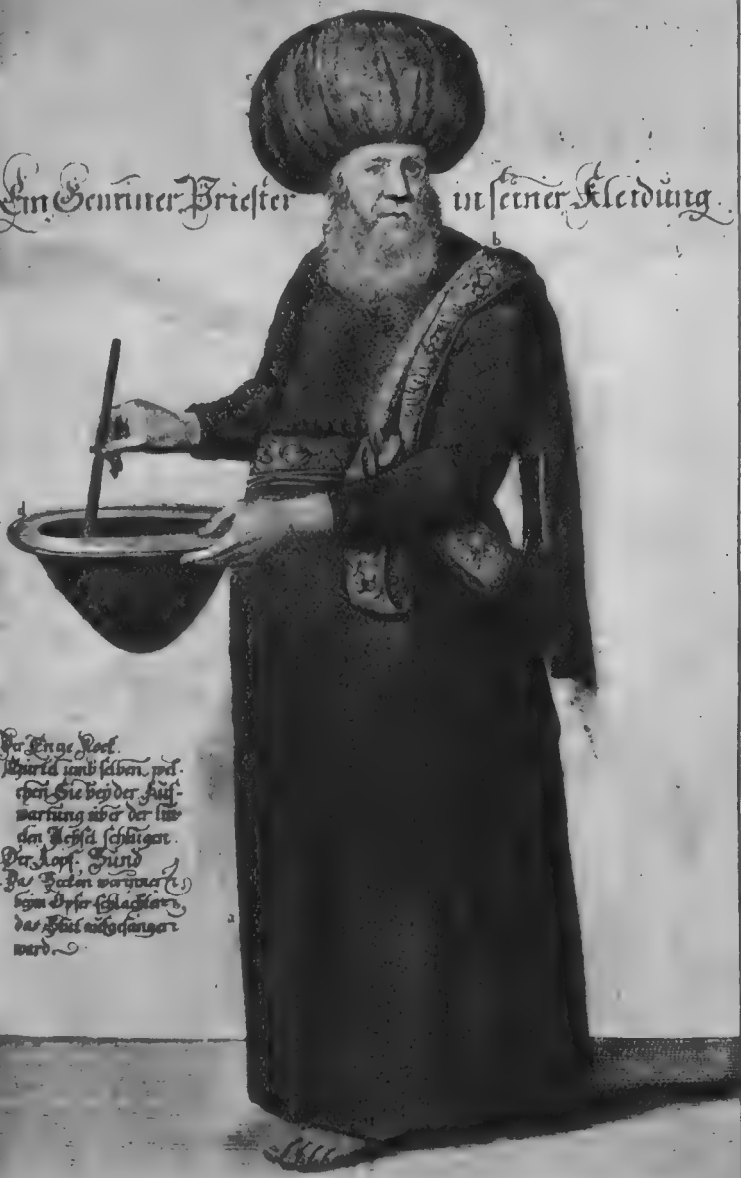 Ein Gemeiner Priester in seiner Kleidung.
b
d
Der Enge Rock.
Gürtel umb selben, wel-
chen Sie bey der Auf-
wartung über der lin-
cken Achsel schlugen.
Der Kopf, Bund
Das Becken worinnen
beym Opfer schlachten
das Blut aufgefangen
ward.
a